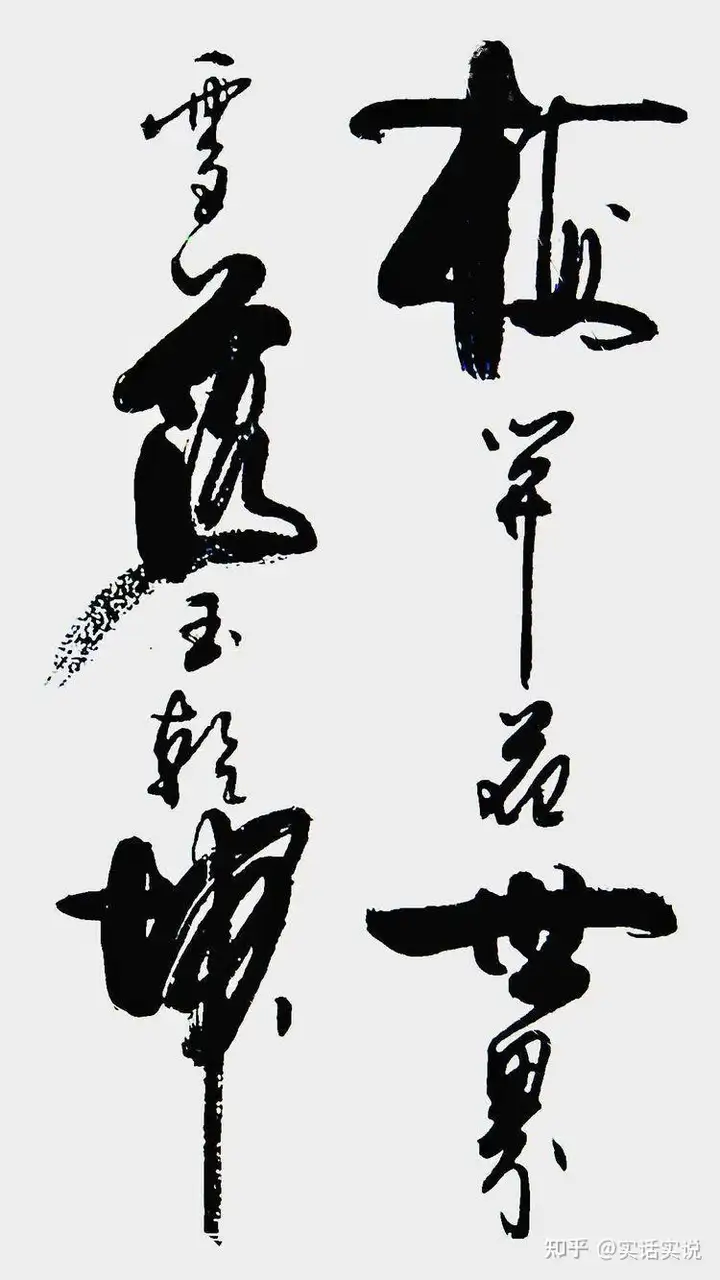 梅开花世界
雪落玉乾坤
知乎 @实话实说